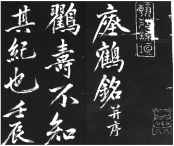 瘞鶴銘并序
鶴壽不知
其紀也壬辰